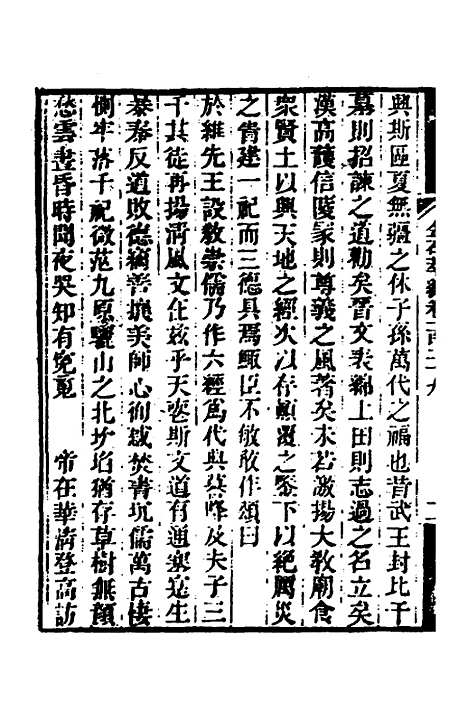 興斯區夏無疆之休子孫萬代之福也昔武王封比干
金石萃編卷一百二十九
二
墓則招諫之道勸矣晉文表綿上田則志過之名立矣
漢高護信陵家則尊義之風著矣未若激揚大教廟食
衆賢上以興天地之經次以存顛覆之鑒下以絕厲災
之胄建一祀而三德具焉鯫臣不敏敢作頌曰
於維先王設教崇儒乃作六經爲代典謩降及夫子三
千其徒再揚清風文在茲乎天喪斯文道有通塞寔生
暴秦反道敗德竊善境美師心徇惑焚書坑儒萬古悽
惻牢落千祀微茫九原驪山之北坎埳猶存草樹無顏
愁雲晝昏時聞夜哭知有寃䰟　帝在華清登高訪